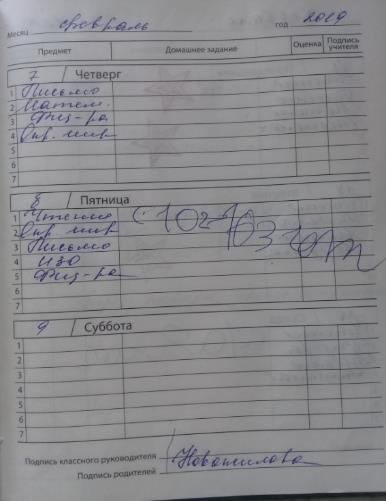 Месяц февраль год 2019
Предмет Домашнее задание Оценка Подпись учителя
7 / Четверг
1 Письмо
2 Матем.
3 Физ-ра
4 Окр. мир
5
6
7
8 / Пятница
1 Чтение
2 Окр. мир
3 Письмо
4 ИЗО
5 Физ-ра
6
7
9 / Суббота
1
2
3
4
5
6
7
Подпись классного руководителя
Подпись родителей